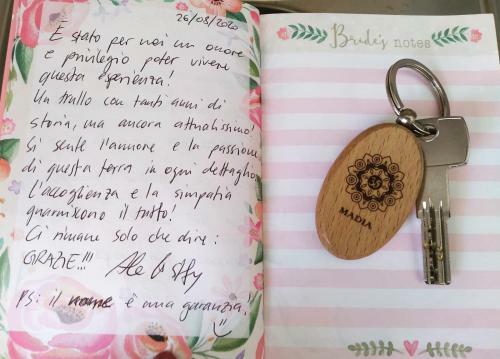 26/08/2020
È stato per noi un onore
e privilegio poter vivere
questa esperienza!
Un trullo con tanti anni di
storia, ma ancora attualissimo!
Si sente l'amore e la passione
di questa terra in ogni dettaglio
L'accoglienza e la simpatia
guarniscono il tutto!
Ci rimane solo che dire:
GRAZIE!!!
PS: il nome è una garanzia!
Bride's notes
MADIA